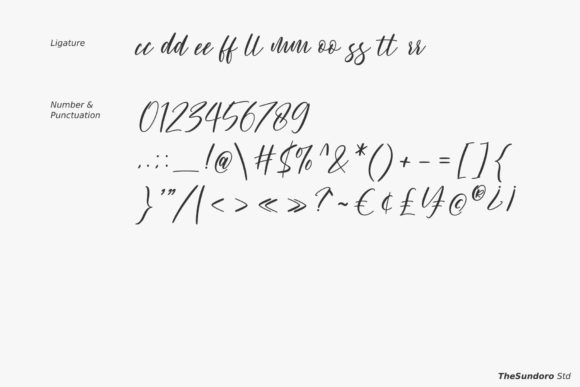 Ligature
cc dd ee ff ll mm oo ss tt rr
Number &
Punctuation
0123456789
,.;:_!@\#$%^&*()+-=[]{
}'"/|<>«»?~€¢£¥©®¿¡
TheSundoro Std